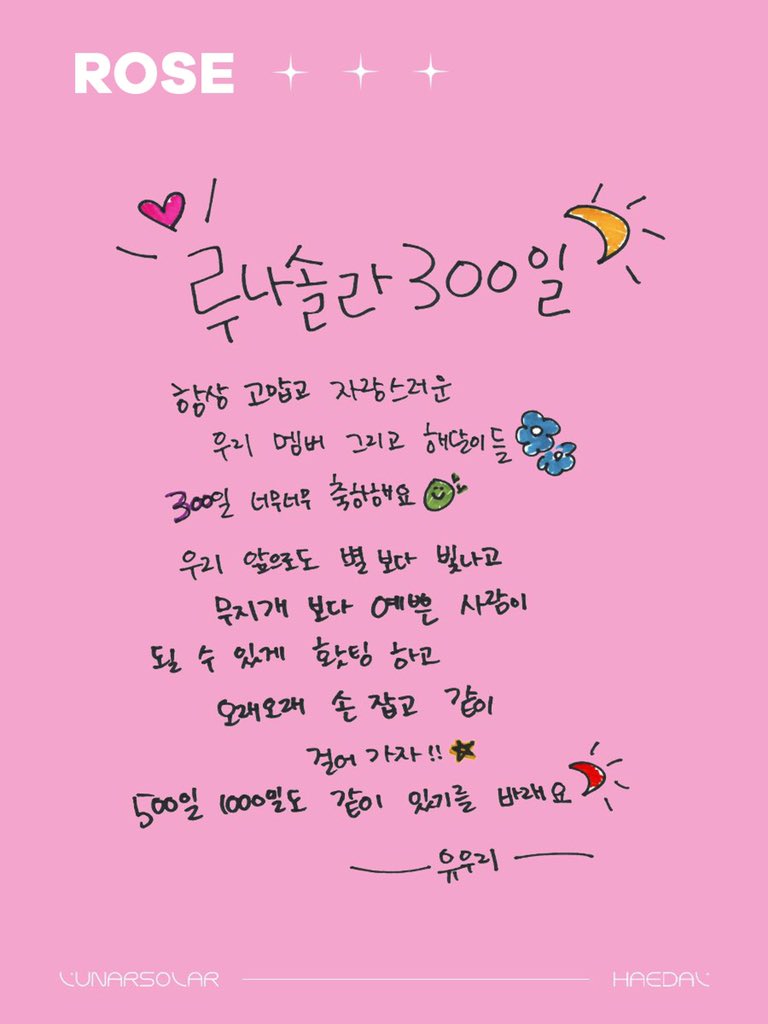 ROSE
루나솔라 300일
항상 고맙고 자랑스러운
우리 멤버 그리고 해달이들
300일 너무너무 축하해요
우리 앞으로도 별 보다 빛나고
무지개 보다 예쁜 사람이
될 수 있게 홧팅 하고
오래오래 손 잡고 같이
걸어 가자!!
500일 1000일도 같이 있기를 바래요
유우리
LUNARSOLAR
HAEDAL